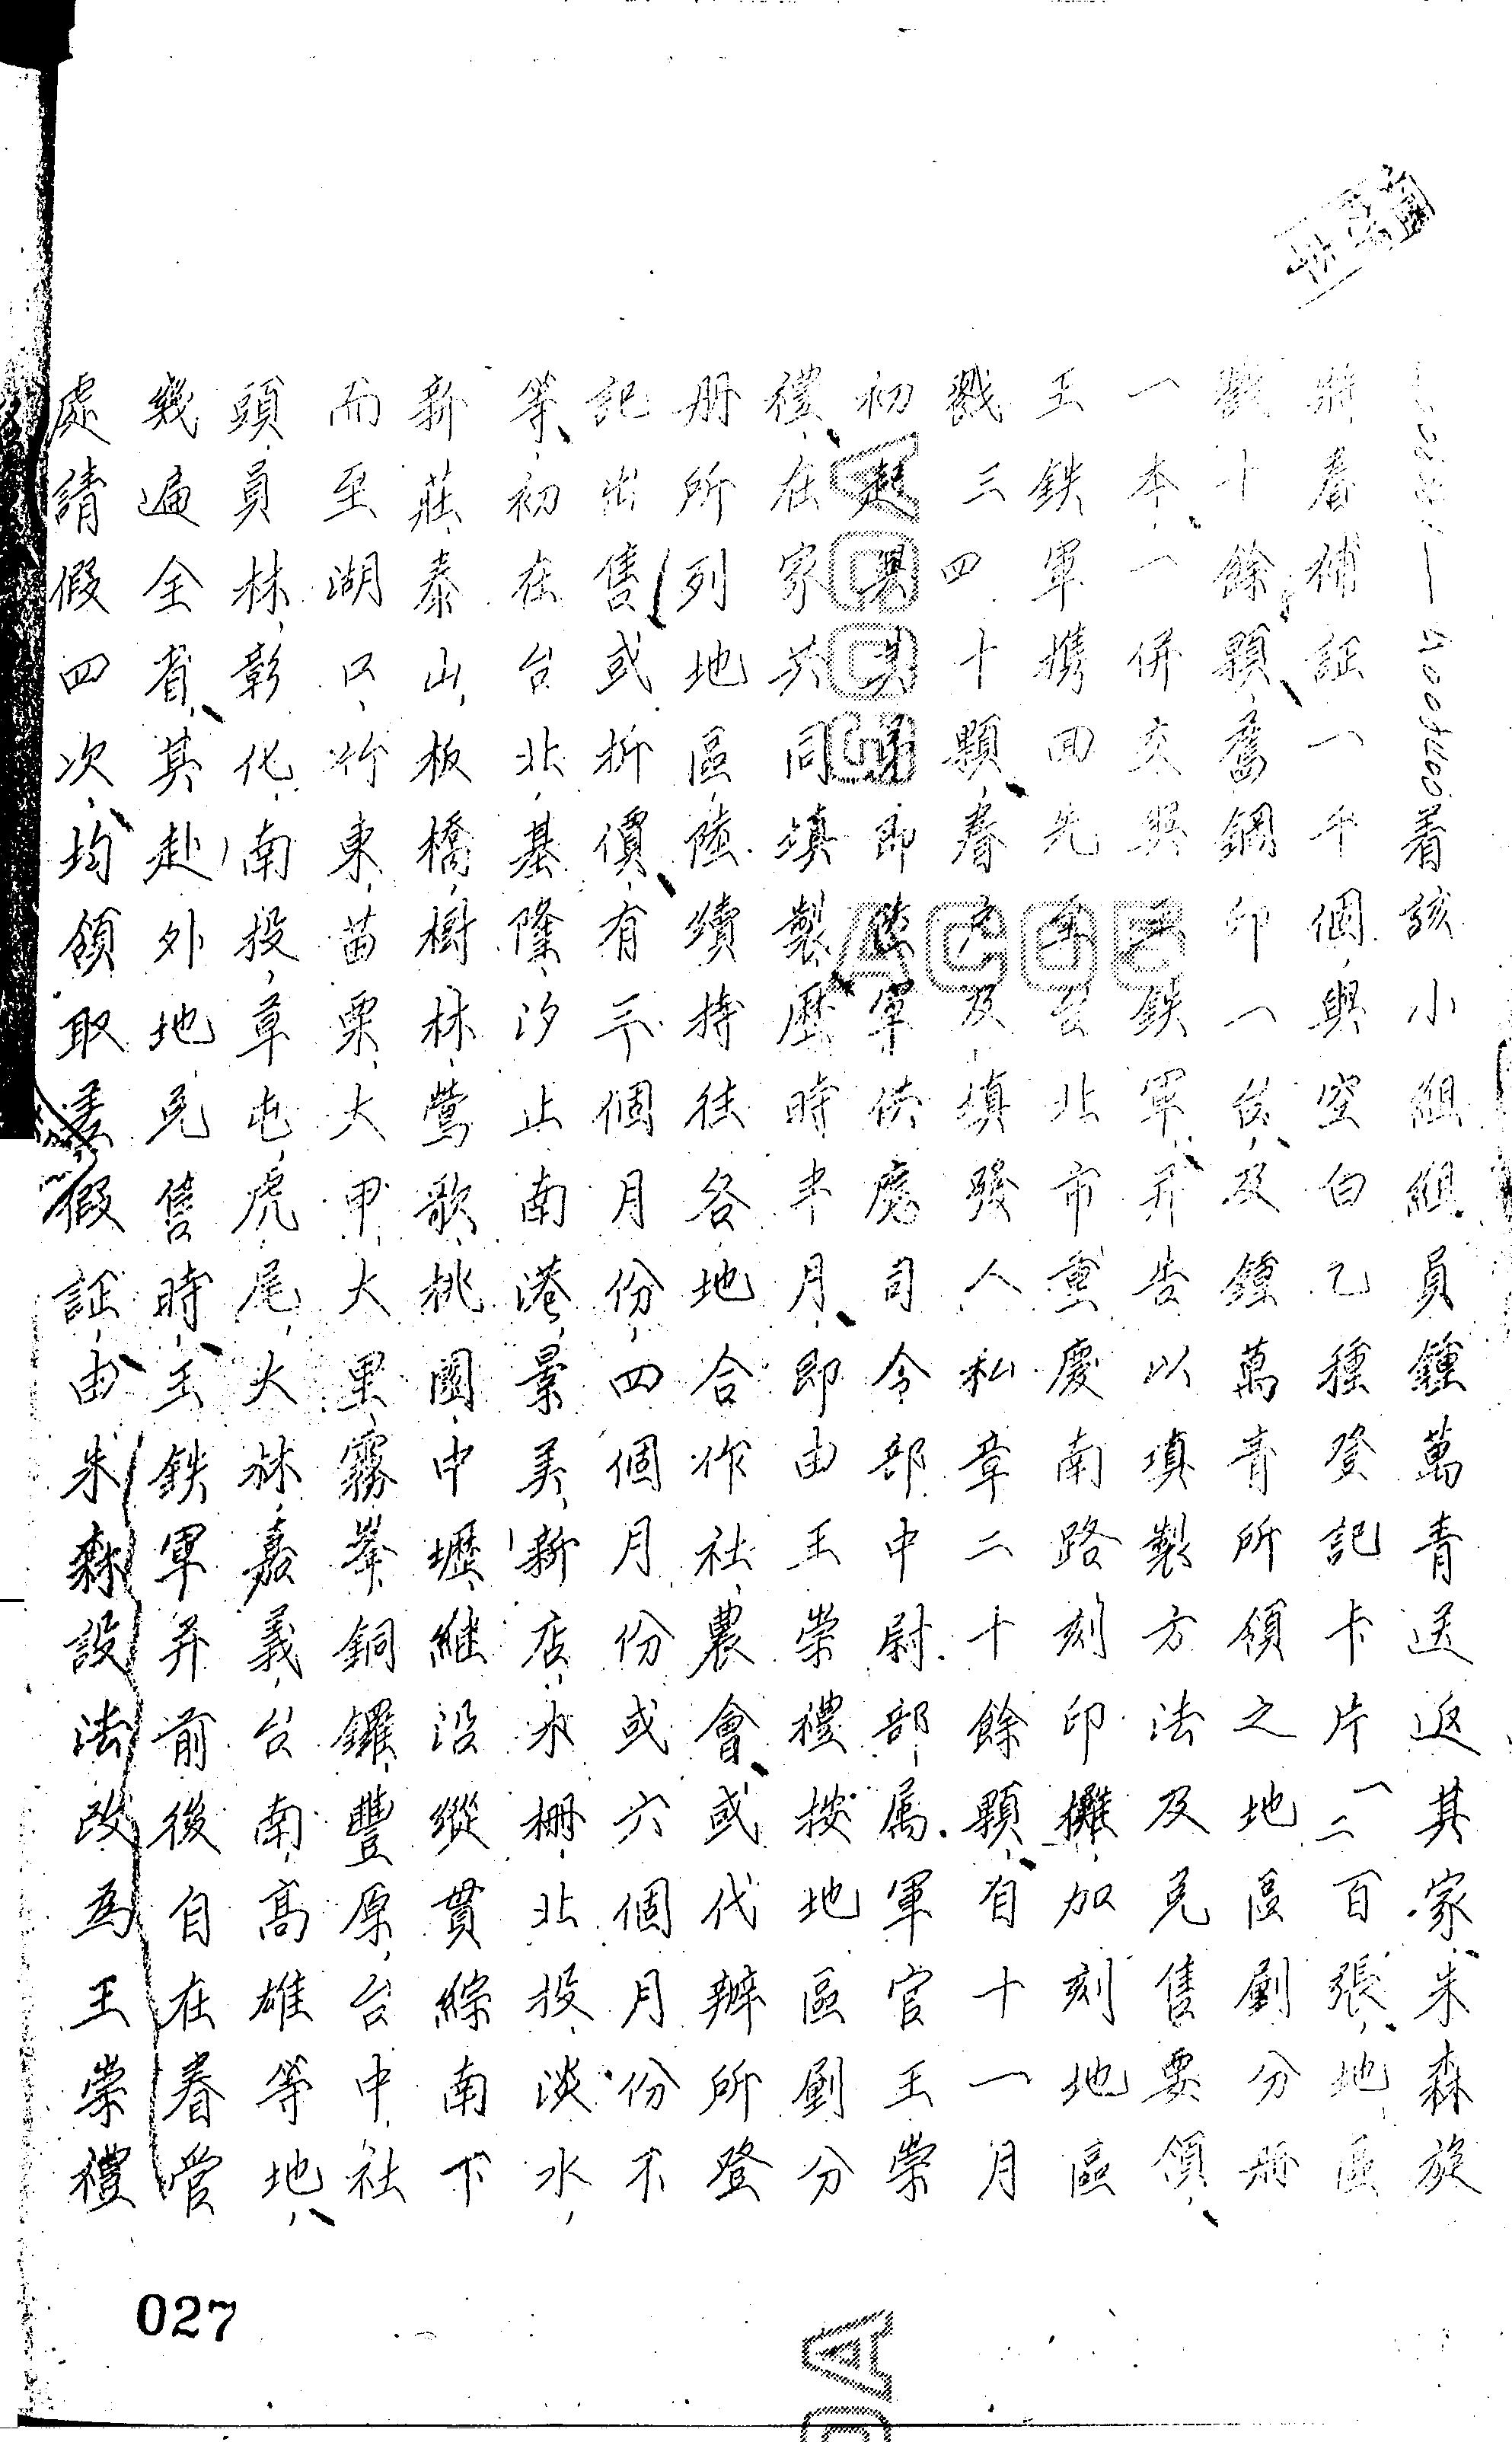 着該小組組員鍾萬青送返其家、朱森旋
將眷補証一千個、與空白乙種登記卡片一二百張、地區
戳十餘顆、舊鋼印一台、及鍾萬青所領之地區劃分冊
一本、一併交與王鉄軍、并告以填製方法及兑售要領、
王鉄軍携回先在台北市重慶南路刻印攤、加刻地區
戳三四十顆、眷 及填發人私章二十餘顆、自十一月
初起與其 即 軍供處司令部中尉部属軍官王崇
禮、在家共同填製歷時半月、即由王崇禮按地區劃分
册所列地區、陸續持往各地合作社、農會、或代辦所登
記出售、或折價、有三個月份、四個月份或六個月份不
等、初在台北、基隆、汐止、南港、景美、新店、木柵、北投、淡水、
新莊、泰山、板橋、樹林、鶯歌、桃園、中壢、継沿縱貫綜南下
而至湖口、竹東、苗栗、大甲、大里、霧峯、銅鑼、豐原、台中、社
頭、員林、彰化、南投、草屯、虎尾、大林、嘉義、台南、高雄等地、
幾遍全省、其赴外地兑售時、王鉄軍并前後自在眷管
處請假四次、均領取差假証、由朱森設法改為王崇禮
027